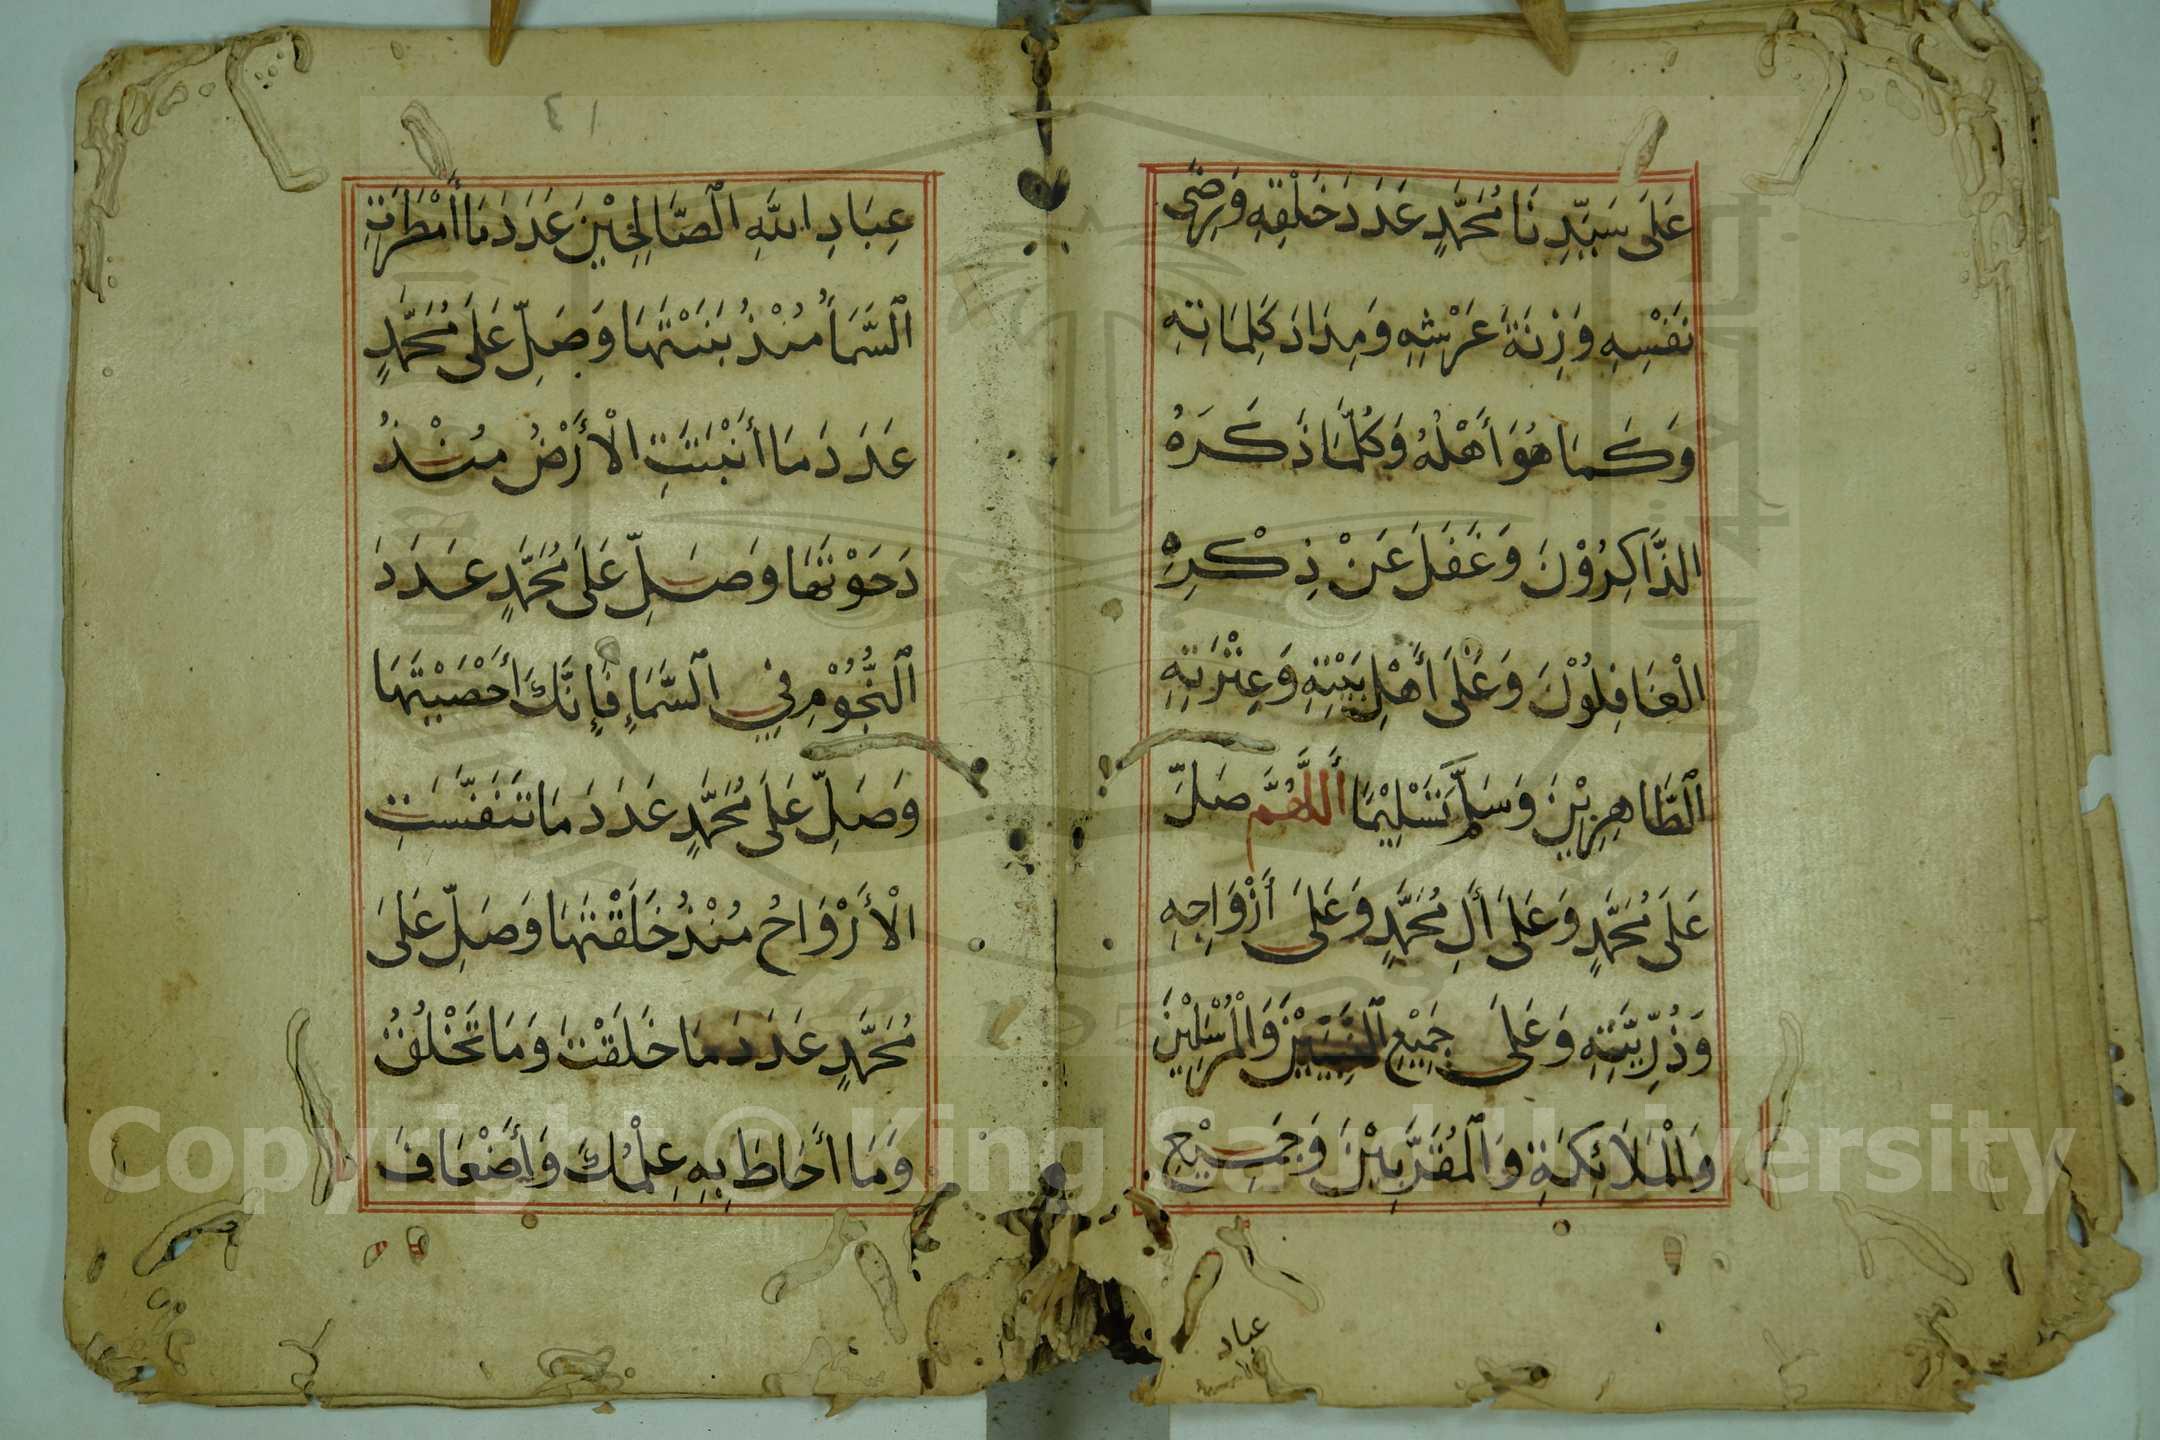 عَلَى سَيِّدِنَا مُحَمَّدٍ عَدَدَ خَلْقِهِ وَرِضَى
نَفْسِهِ وَزِنَةَ عَرْشِهِ وَمِدَادَ كَلِمَاتِهِ
وَكَمَا هُوَ أَهْلُهُ وَكُلَّمَا ذَكَرَهُ
الذَّاكِرُوْنَ وَغَفَلَ عَنْ ذِكْرِهِ
الْغَافِلُوْنَ وَعَلَى أَهْلِ بَيْتِهِ وَعِتْرَتِهِ
الطَّاهِرِيْنَ وَسَلِّمْ تَسْلِيْمًا أَللَّهُمَّ صَلِّ
عَلَى مُحَمَّدٍ وَعَلَى أَلِ مُحَمَّدٍ وَعَلَى أَزْوَاجِهِ
وَذُرِّيَّتِهِ وَعَلَى جَمِيْعِ النَّبِيِّيْنَ وَالْمُرْسَلِيْنَ
وَالْمَلَائِكَةِ وَالْمُقَرَّبِيْنَ وَجَمِيْعِ
عباد
١٤
عِبَادِ اللهِ الصَّالِحِيْنَ عَدَدَ مَا أَمْطَرَتِ
السَّمَاءُ مُنْذُ بَنَيْتَهَا وَصَلِّ عَلَى مُحَمَّدٍ
عَدَدَ مَا أَنْبَتَتِ الْأَرْضُ مُنْذُ
دَحَوْتَهَا وَصَلِّ عَلَى مُحَمَّدٍ عَدَدَ
النُّجُوْمِ فِي السَّمَاءِ فَإِنَّكَ أَحْصَيْتَهَا
وَصَلِّ عَلَى مُحَمَّدٍ عَدَدَ مَا تَنَفَّسَتِ
الْأَرْوَاحُ مُنْذُ خَلَقْتَهَا وَصَلِّ عَلَى
مُحَمَّدٍ عَدَدَ مَا خَلَقْتَ وَمَا تَخْلُقُ
وَمَا أَحَاطَ بِهِ عِلْمُكَ وَأَضْعَافَ
Copyright © King Saud University